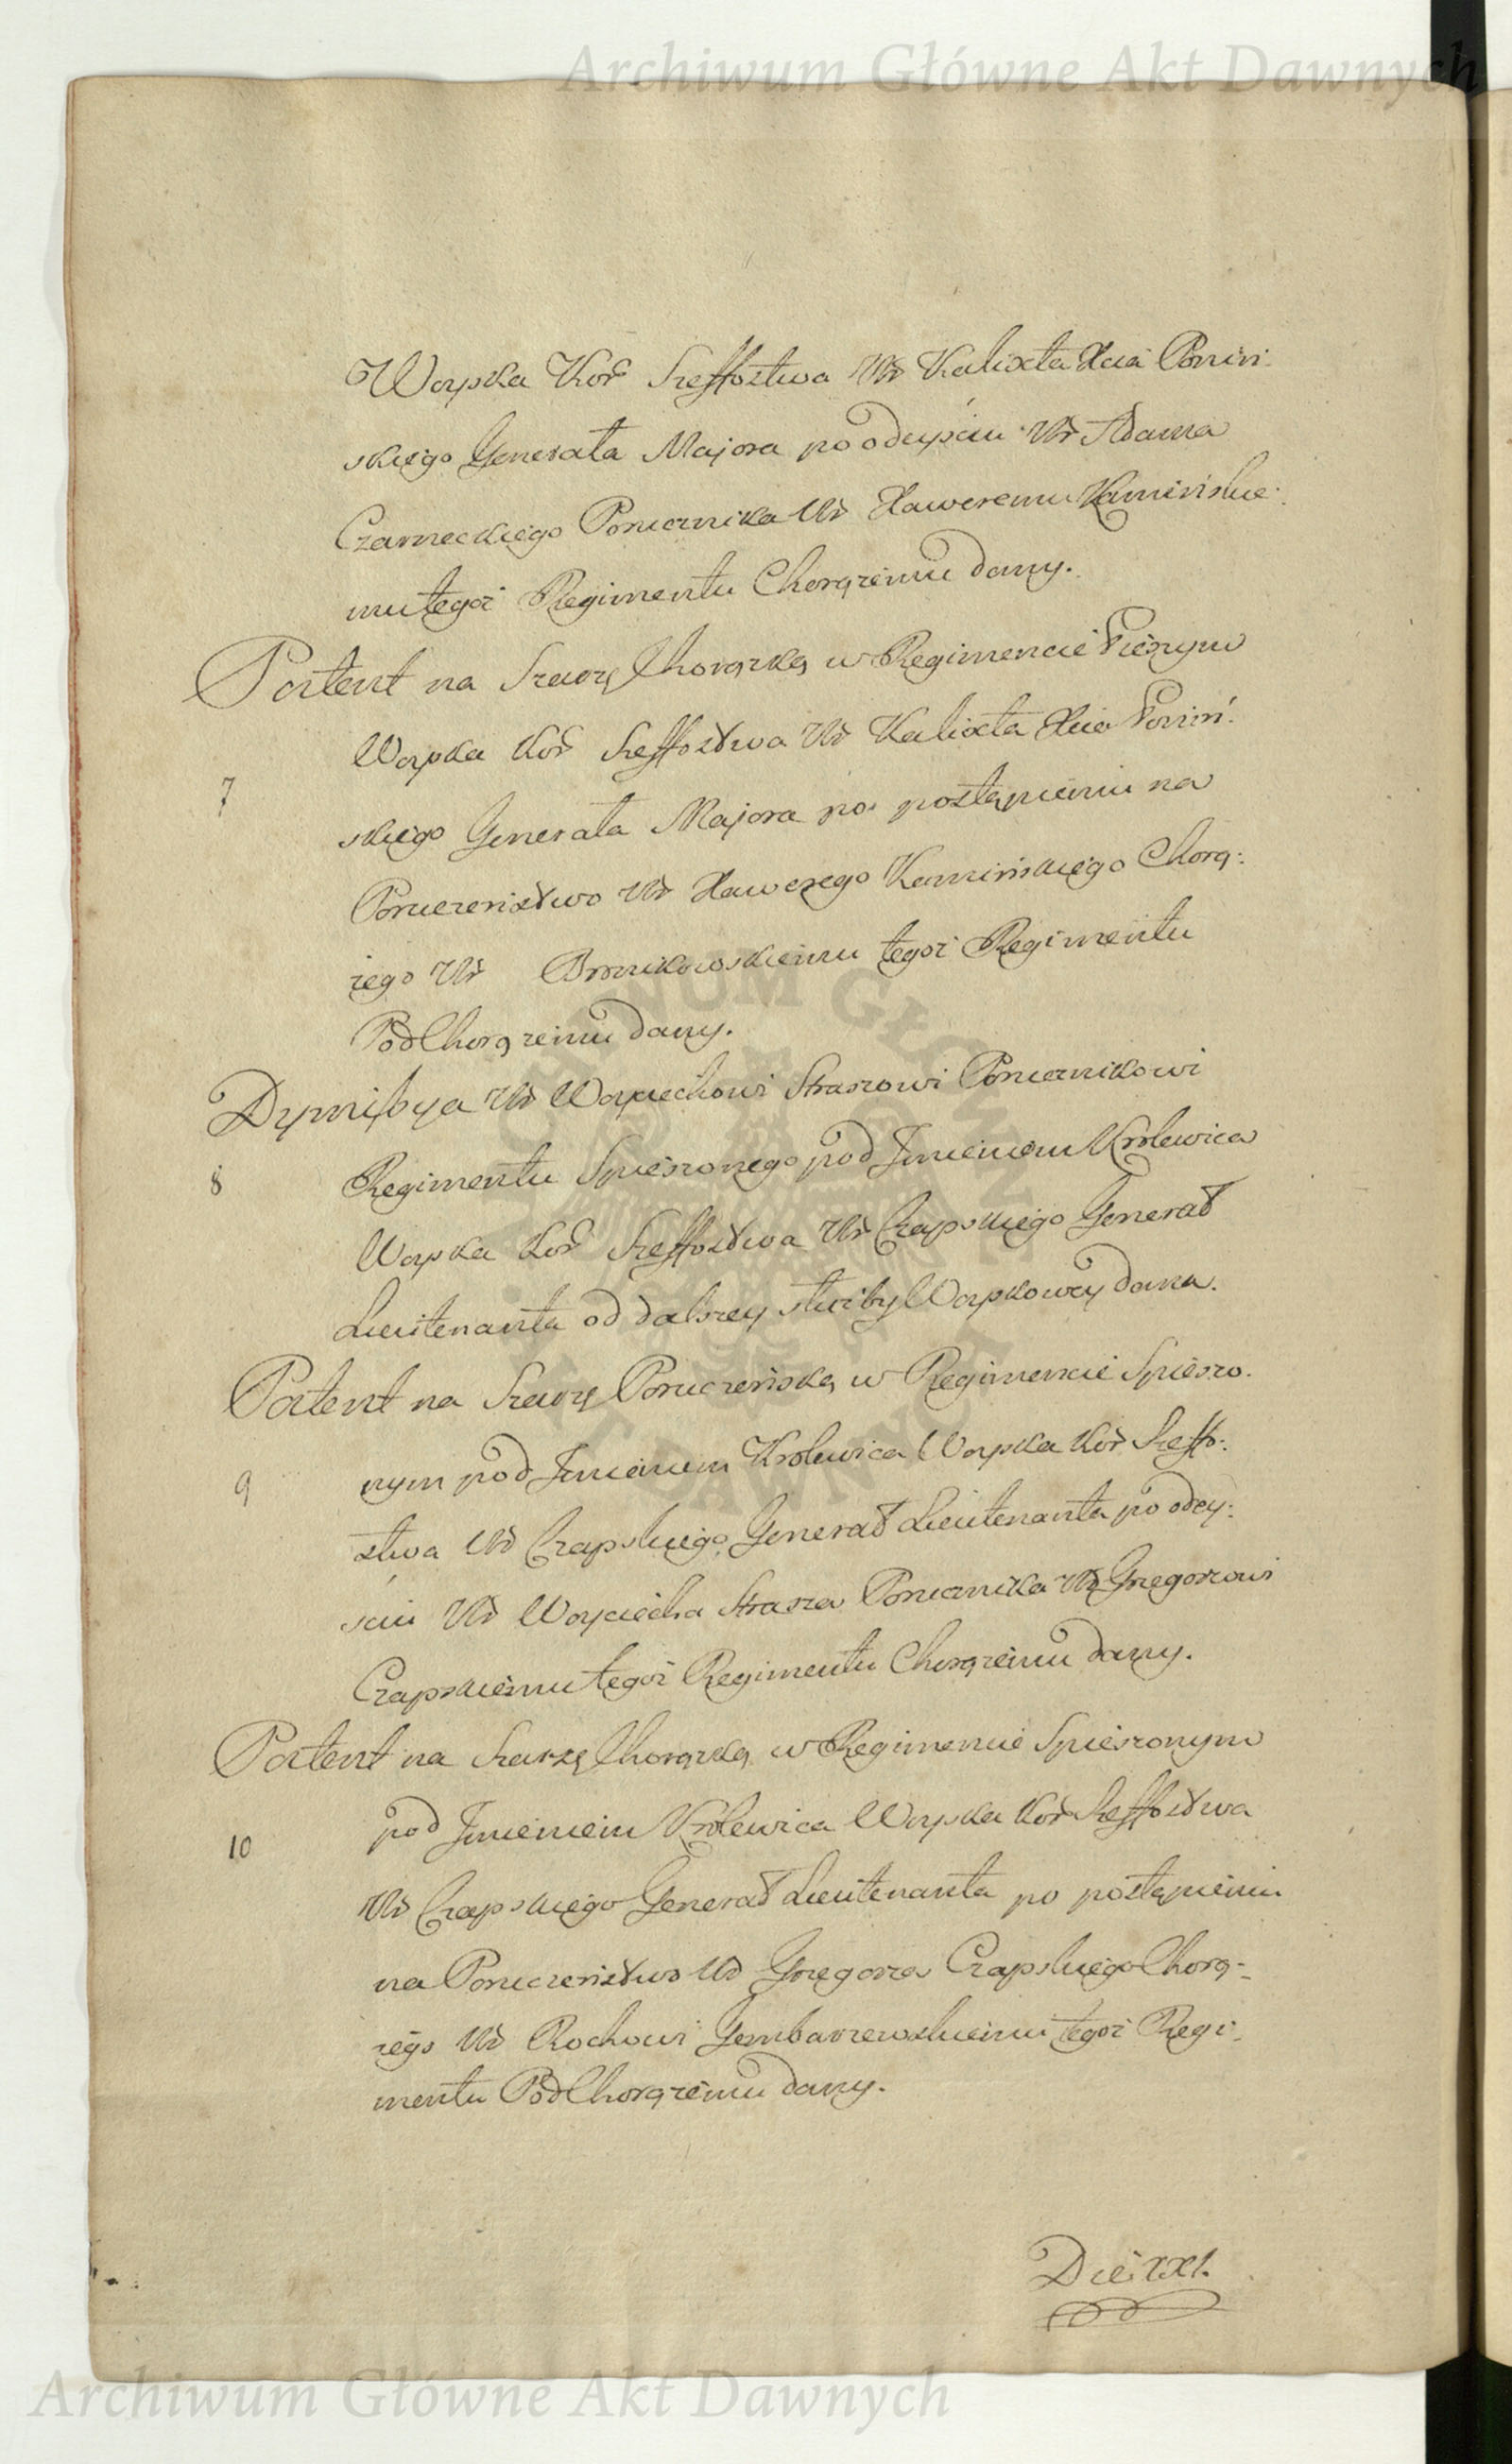 Archiwum Główne Akt Dawnych
Woyska Kor Szeffostwa Ur Kalixta Xcia Poniń:
skiego Generała Majora po odeyściu Ur Adama
Czarneckiego Porucznika Ur Xaweremu Kamińskie:
mu tegoż Regimentu Chorążemu dany.
Patent na Szarżę Chorążką w Regimencie Pieszym
Woyska Kor Szeffostwa Ur Kalixta Xcia Poniń:
7
skiego Generała Majora po postąpieniu na
Poruczeństwo Ur Xawerego Kamińskiego Chorą:
żego Ur Bronikowskiemu tegoż Regimentu
PodChorążemu dany.
Dymissya Ur Woyciechowi Straszowi Porucznikowi
8 Regimentu Spieszonego pod Jmieniem Krolewica
Woyska Kor Szeffostwa Ur Czapskiego Generał
Lieutenanta od dalszey służby Woyskowey dana.
Patent na Szarżę Poruczeńską w Regimencie Spieszo:
9 nym pod Jmieniem Krolewica Woyska Kor Szeffo:
stwa Ur Czapskiego Generał Lieutenanta po odey:
ściu Ur Woyciecha Strasza Porucznika Ur Grzegorzowi
Czapskiemu tegoż Regimentu Chorążemu dany.
Patent na Szarżę Chorążką w Regimencie Spieszonym
10 pod Jmieniem Krolewica Woyska Kor Szeffostwa
Ur Czapskiego Generał Lieutenanta po postąpieniu
na Poruczeństwo Ur Grzegorza Czapskiego Chorą:
żego Ur Rochowi Jembarzewskiemu tegoż Regi:
mentu PodChorążemu dany.
Die XXI.
Archiwum Główne Akt Dawnych